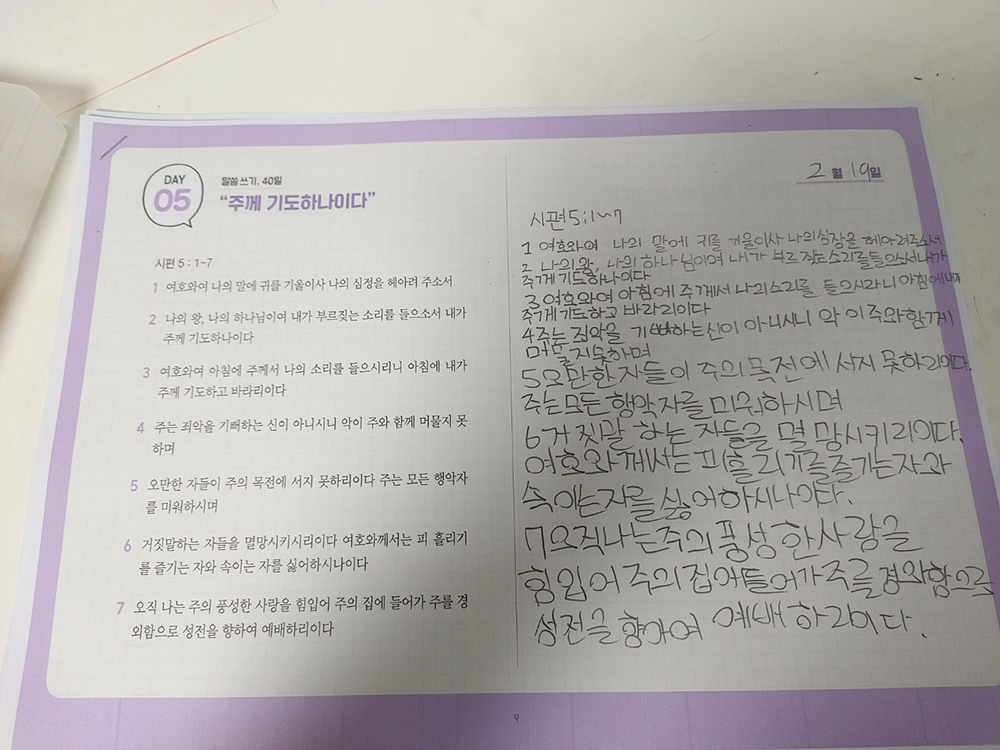 DAY
05
말씀 쓰기, 40일
“주께 기도하나이다”
시편 5 : 1~7
1 여호와여 나의 말에 귀를 기울이사 나의 심정을 헤아려 주소서
2 나의 왕, 나의 하나님이여 내가 부르짖는 소리를 들으소서 내가
주께 기도하나이다
3 여호와여 아침에 주께서 나의 소리를 들으시리니 아침에 내가
주께 기도하고 바라리이다
4 주는 죄악을 기뻐하는 신이 아니시니 악이 주와 함께 머물지 못
하며
5 오만한 자들이 주의 목전에 서지 못하리이다 주는 모든 행악자
를 미워하시며
6 거짓말하는 자들을 멸망시키시리이다 여호와께서는 피 흘리기
를 즐기는 자와 속이는 자를 싫어하시나이다
7 오직 나는 주의 풍성한 사랑을 힘입어 주의 집에 들어가 주를 경
외함으로 성전을 향하여 예배하리이다
2월 19일
시편5:1~7
1 여호와여 나의 말에 귀를 기울이사 나의심장을 헤아려주소서
2 나의왕, 나의 하나님이여 내가 부르짖는소리를들으소서내가
주께기도하나이다
3 여호와여 아침에 주께서 나의소리를 들으시리니 아침에내가
주께기도하고 바라리이다
4주는 죄악을 기뻐하는신이 아니시니 악이주와함께
머물지못하며
5오만한자들이 주의목전에 서지 못하리이다.
주는모든 행악자를미워하시며
6거짓말 하는 자들을 멸망시키리이다.
여호와께서는 피흘리기를즐기는자와
속이는자를 싫어하시나이다.
7오직나는주의풍성한사랑을
힘입어 주의집에들어가주를경외함으로
성전을 향하여 예배하리이다.
9